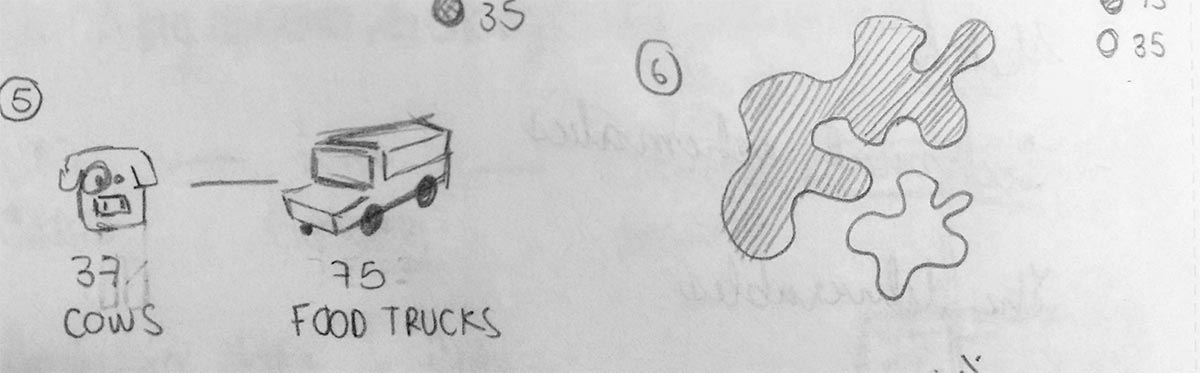 35
5
37
COWS
75
FOOD TRUCKS
6
35